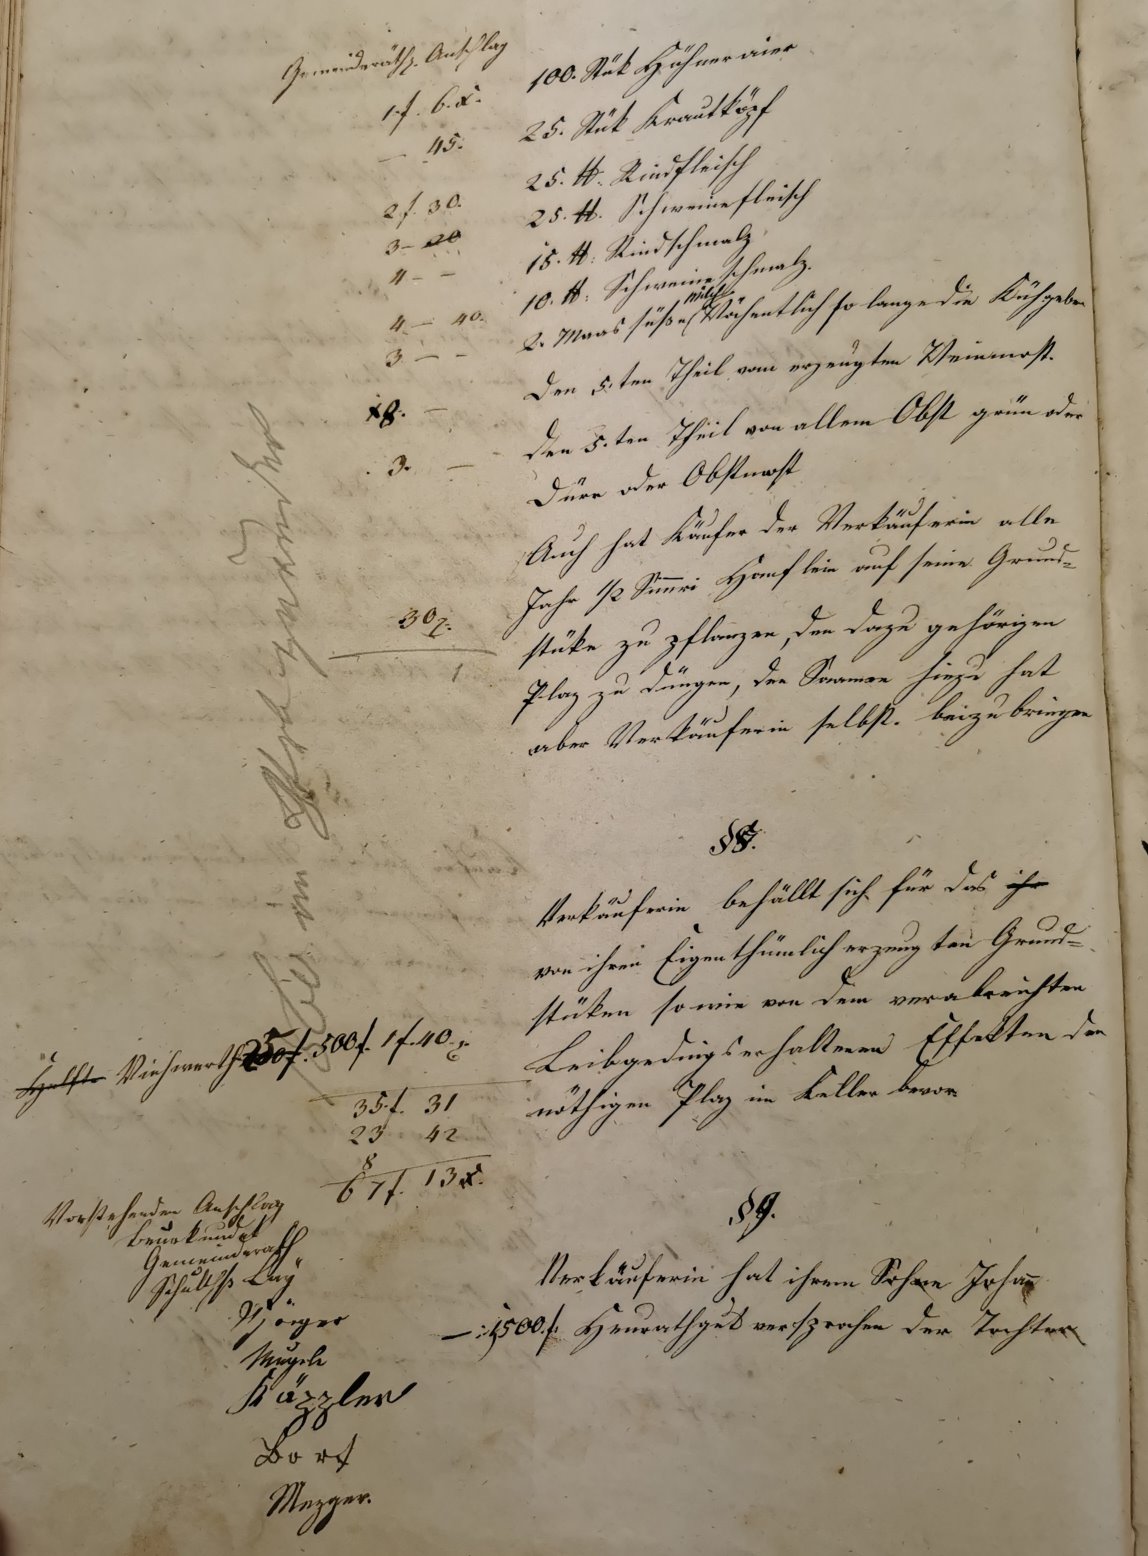 Gemeinderäthl. Anschlag
1 f. 6 x. 100. Stük Hühneraier
— 45. 25. Stük Krautköpf
2 f. 30. 25. ℔. Rindfleisch
3 — 20 25. ℔. Schweinefleisch
4 — — 15. ℔. Rindschmalz
4 — 40. 10. ℔. Schweineschmalz.
3 — — 2. Maas süße Milch Wöchentlich so lange die Küh geben
8. — Den 5.ten Theil vom erzeugten Weinmost.
3. — Den 5.ten Theil von allem Obst grün oder
Dürr oder Obstmost
Auch hat Käufer der Verkäuferin alle
Jahr 1/2 Simri Hanflein auf seine Grund=
30 x. stüke zu pflanzen, den dazu gehörigen
Plaz zu düngen, den Saamen hiezu hat
aber Verkäuferin selbst. beizubringen
§ 8.
Verkäuferin behällt sich für das ihr
von ihren Eigenthümlich erzeugten Grund=
stüken sowie von dem verabreichten
Leibgedings erhaltenen Effekten den
nöthigen Plaz im Keller bevor
Hälfte Viehwerth 250 f. 500 f. 1 f. 40 x.
35 f. 31
23 42
8
67 f. 13 x.
Vorstehenden Anschlag
beurkundet
Gemeinderath
Schulths Lay
Mugele
Käppler
Bort
Mezger.
§ 9.
Verkäuferin hat ihrem Sohne Johan
—: 1500. f. Heurathgut versprochen der Tochter